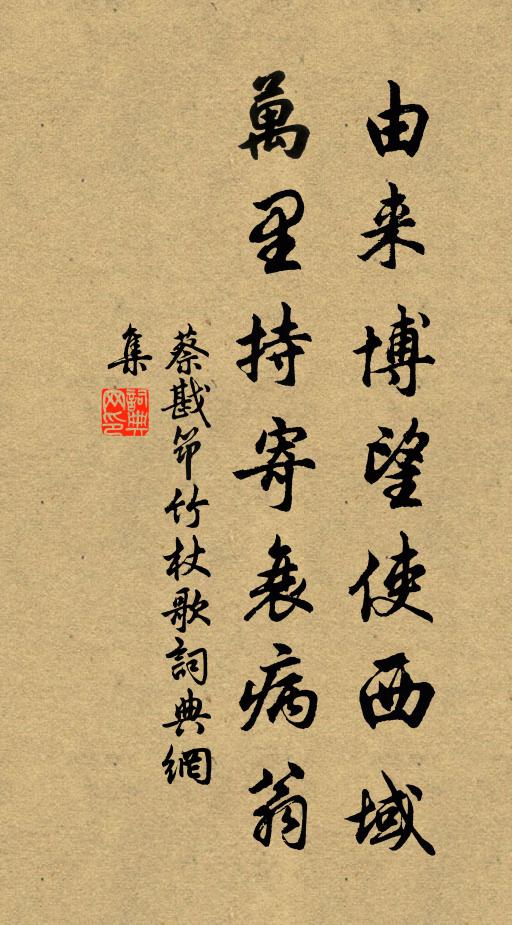 由来博望使西域
萬里持寄衰病翁
蔡戡笻竹杖歌詞典網
集
詞典網印